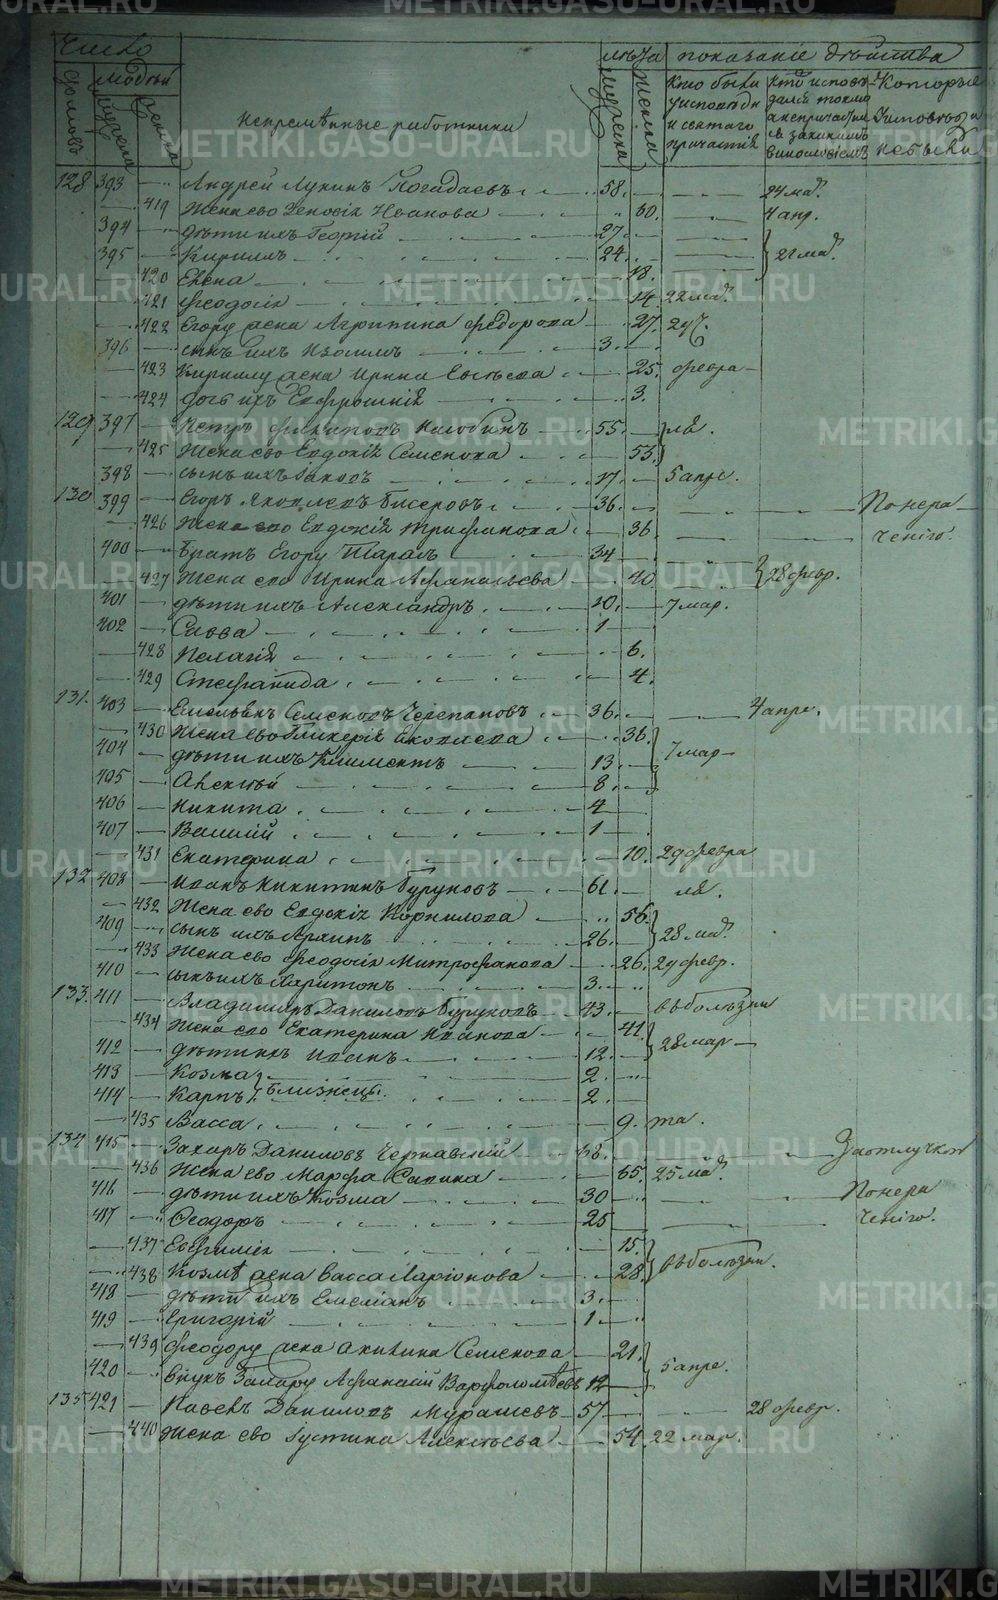 Число
лета
показаніе действа
домовъ
людей
мужеска
женска
Непременные работники
мужеска
женска
Кто были у исповеди и святаго причастія
Кто исповедался токмо а не причастился за какимъ винословіемъ
Которые у исповеди не были
128 393 — Андрей Лукинъ Погадаевъ 58. — 24 мар.
— 419 Жена ево Зеновія Иванова 60. — 4 апр.
394 — дети ихъ Георгій 27.
395 — Кириллъ 24. 22 мар.
— 420 Елена 18.
— 421 Феодосія 14. 22 мар.
— 422 Егору жена Агрипина Федорова 27.
396 — сынъ ихъ 3.
— 423 Кириллу жена Ирина 25. февра-
— 424 дочь ихъ Евфросинія 3.
129 397 — Петръ Филиповъ 55. — ля.
— 425 Жена ево Евдокія Семенова 53.
398 — сынъ ихъ Иаковъ 17. — 5 апре.
130 399 — Егоръ Яковлевъ Бисеровъ 36. — Понера-
— 426 Жена ево Евдокія Трифанова 36 ченію.
400 — Братъ Егору Тарасъ 34
— 427 Жена ево Ирина Афанасьева 40 28 февр.
401 — дети ихъ Александръ 10. — 7 мар.
402 — Савва 1
— 428 Пелагія 6.
— 429 Стефанида 4.
131. 403 — Емельянъ Семеновъ Черепановъ 36. — 4 апре.
— 430 Жена ево Гликерія Яковлева 36.
404 — дети ихъ Климентъ 13. 7 мар—
405 — Алексей 8.
406 — Никита 4
407 — Василій 1
— 431 Екатерина 10. 29 февра
132 408 — Иванъ Никитинъ Буруховъ 61. — ля.
— 432 Жена ево Евдокія Корнилова 56.
409 — сынъ ихъ Архипъ 26. 28 мар.
— 433 Жена ево Феодосія Митрофанова 26. 29 февр.
410 — сынъ ихъ Харитонъ 3.
133. 411 — Владимиръ Даниловъ Буруховъ 43. — въ болезни
— 434 Жена ево Екатерина Иванова 41.
412 — дети ихъ Иванъ 12. 28 мар—
413 — Козма 2.
414 — Карпъ } близнецы. 2.
— 435 Васса 9. та.
134 415 — Захаръ Даниловъ Чернавскій 68. — За отлучкою
— 436 Жена ево Марфа Савина 65. 25 мар.
416 — дети ихъ Козма 30 — Понера
417 — Феодоръ 25 — ченію.
— 437 Евфимія 15.
— 438 Козме жена Васса Ларіонова 28. въ болезни.
418 — дети ихъ Емеліанъ 3.
419 — Григорій 1
— 439 Феодору жена Акилина Семенова 21.
420 — внукъ Захару Афанасій Варфоломеевъ 12 5 апре.
135 421 — Павелъ Даниловъ Мурашевъ 57 — 28 февр.
— 440 Жена ево Густина Алексеева 54. 22 мар.
METRIKI.GASO-URAL.RU